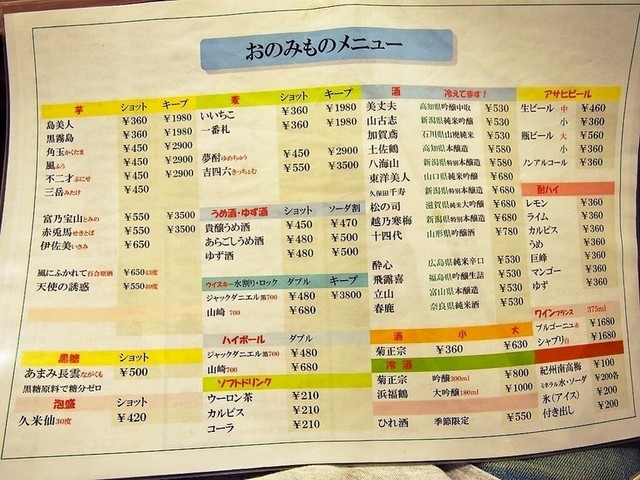 おのみものメニュー
芋 ショット キープ
島美人 ¥360 ¥1980
黒霧島 ¥360 ¥1980
角玉かくたま ¥450 ¥2900
風ふう ¥450 ¥2900
不二才ぶにせ ¥450 ¥2900
三岳みたけ ¥450
富乃宝山とみの ¥550 ¥3500
赤兎馬せきとば ¥550 ¥3500
伊佐美いさみ ¥650
風にふかれて百合原酒 ¥650 43度
天使の誘惑 ¥550 40度
黒糖 ショット
あまみ長雲ながくも ¥500
黒糖原料で糖分ゼロ
泡盛 ショット
久米仙30度 ¥420
麦 ショット キープ
いいちこ ¥360 ¥1980
一番札 ¥360 ¥1980
夢酎ゆめちゅう ¥450 ¥2900
吉四六きっちょむ ¥550 ¥3500
うめ酒・ゆず酒 ショット ソーダ割
貴醸うめ酒 ¥450 ¥470
あらごしうめ酒 ¥480 ¥500
ゆず酒 ¥480 ¥500
ウイスキー水割り・ロック ダブル キープ
ジャックダニエル黒700 ¥480 ¥3800
山崎 700 ¥680
ハイボール ダブル
ジャックダニエル黒700 ¥480
山崎 700 ¥680
ソフトドリンク
ウーロン茶 ¥210
カルピス ¥210
コーラ ¥210
酒 冷えてます!
美丈夫 高知県吟醸中取 ¥530
山古志 新潟県純米吟醸 ¥530
加賀鳶 石川県山廃純米 ¥530
土佐鶴 高知県本醸造 ¥580
八海山 新潟県特別本醸造 ¥580
東洋美人 山口県純米吟醸 ¥680
久保田千寿 新潟県特別本醸造 ¥680
松の司 滋賀県純米大吟醸 ¥680
越乃寒梅 新潟県特別本醸造 ¥680
十四代 山形県吟醸酒 ¥780
酔心 広島県純米辛口 ¥530
飛露喜 福島県吟醸生詰 ¥530
立山 富山県本醸造 ¥530
春鹿 奈良県純米酒 ¥530
酒 小 大
菊正宗 ¥360 ¥630
冷酒
菊正宗 吟醸300ml ¥800
浜福鶴 大吟醸180ml ¥1000
ひれ酒 季節限定 ¥550
アサヒビール
生ビール 中 ¥460
小 ¥360
瓶ビール 大 ¥560
小 ¥360
ノンアルコール ¥360
酎ハイ
レモン ¥360
ライム ¥360
カルピス ¥360
うめ ¥360
巨峰 ¥360
マンゴー ¥360
ゆず ¥360
ワインフランス 375ml
ブルゴーニュ赤 ¥1680
シャブリ白 ¥1680
紀州南高梅 ¥100
ミネラル水・ソーダ ¥200各
氷(アイス) ¥200
付き出し ¥200